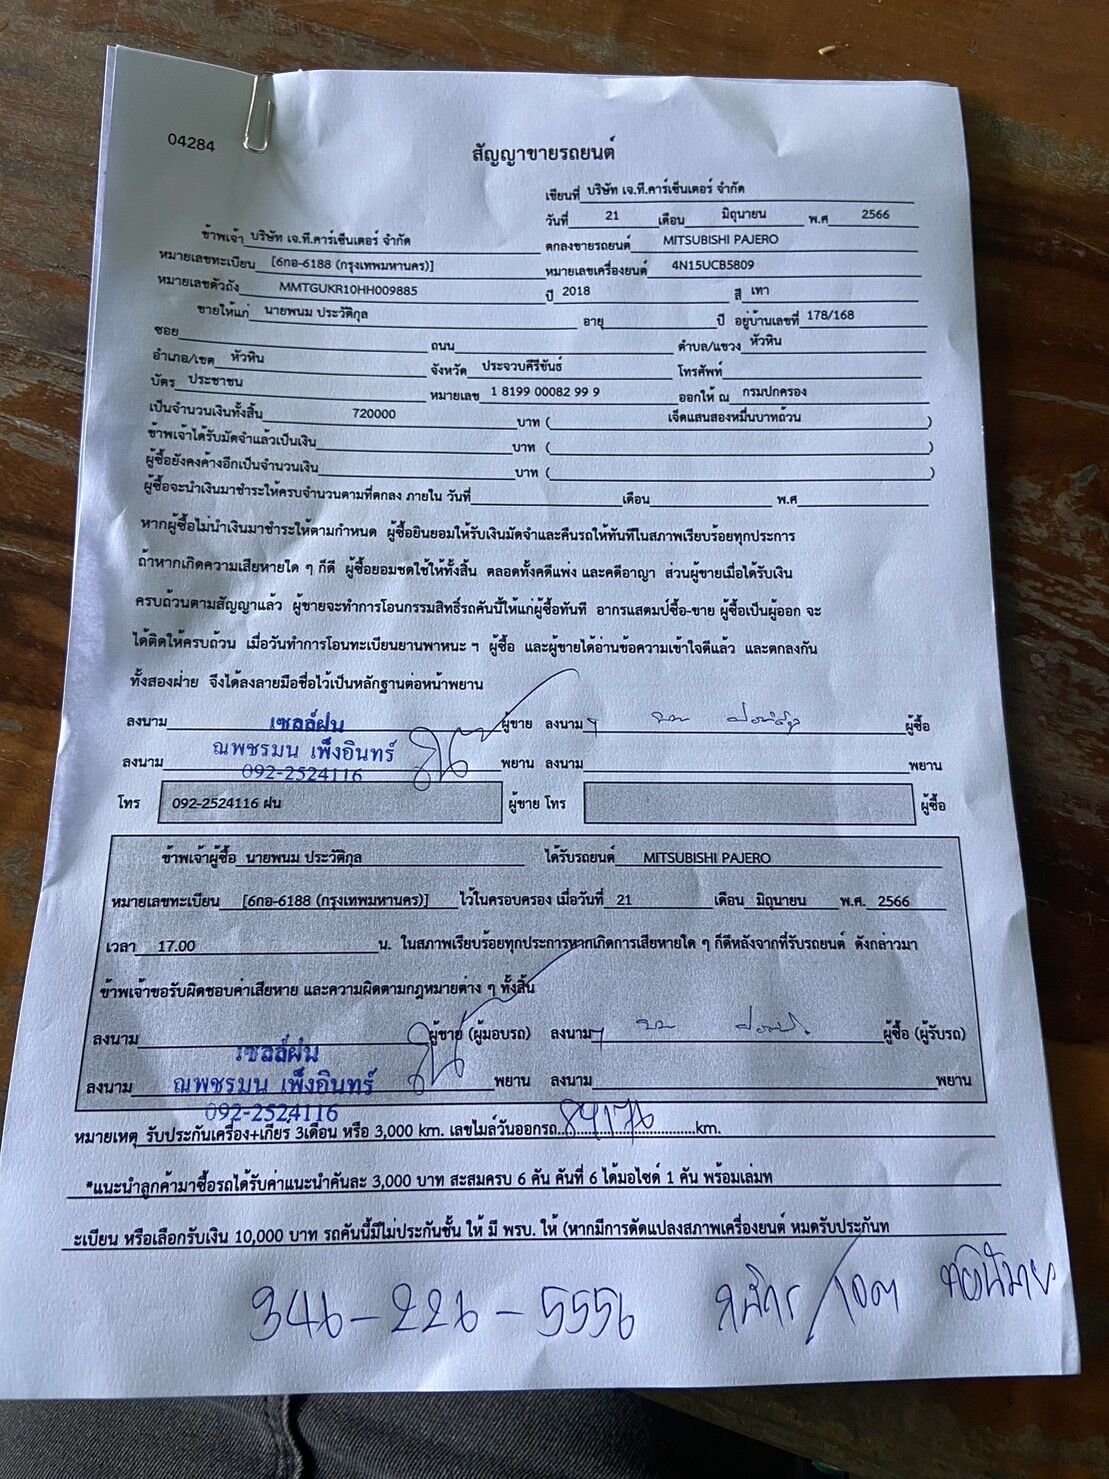 04284
สัญญาขายรถยนต์
เขียนที่ บริษัท เจ.ที.คาร์เซ็นเตอร์ จำกัด
วันที่ 21 เดือน มิถุนายน พ.ศ 2566
ข้าพเจ้า บริษัท เจ.ที.คาร์เซ็นเตอร์ จำกัด ตกลงขายรถยนต์ MITSUBISHI PAJERO
หมายเลขทะเบียน [6กอ-6188 (กรุงเทพมหานคร)] หมายเลขเครื่องยนต์ 4N15UCB5809
หมายเลขตัวถัง MMTGUKR10HH009885 ปี 2018 สี เทา
ขายให้แก่ นายพนม ประวัติกุล อายุ ปี อยู่บ้านเลขที่ 178/168
ซอย ถนน ตำบล/แขวง หัวหิน
อำเภอ/เขต หัวหิน จังหวัด ประจวบคีรีขันธ์ โทรศัพท์
บัตร ประชาชน หมายเลข 1 8199 00082 99 9 ออกให้ ณ กรมปกครอง
เป็นจำนวนเงินทั้งสิ้น 720000 บาท ( เจ็ดแสนสองหมื่นบาทถ้วน )
ข้าพเจ้าได้รับมัดจำแล้วเป็นเงิน บาท ( )
ผู้ซื้อยังคงค้างอีกเป็นจำนวนเงิน บาท ( )
ผู้ซื้อจะนำเงินมาชำระให้ครบจำนวนตามที่ตกลง ภายใน วันที่ เดือน พ.ศ
หากผู้ซื้อไม่นำเงินมาชำระให้ตามกำหนด ผู้ซื้อยินยอมให้รับเงินมัดจำและคืนรถให้ทันทีในสภาพเรียบร้อยทุกประการ
ถ้าหากเกิดความเสียหายใด ๆ ก็ดี ผู้ซื้อยอมชดใช้ให้ทั้งสิ้น ตลอดทั้งคดีแพ่ง และคดีอาญา ส่วนผู้ขายเมื่อได้รับเงิน
ครบถ้วนตามสัญญาแล้ว ผู้ขายจะทำการโอนกรรมสิทธิ์รถคันนี้ให้แก่ผู้ซื้อทันที อากรแสตมป์ซื้อ-ขาย ผู้ซื้อเป็นผู้ออก จะ
ได้ติดให้ครบถ้วน เมื่อวันทำการโอนทะเบียนยานพาหนะ ฯ ผู้ซื้อ และผู้ขายได้อ่านข้อความเข้าใจดีแล้ว และตกลงกัน
ทั้งสองฝ่าย จึงได้ลงลายมือชื่อไว้เป็นหลักฐานต่อหน้าพยาน
ลงนาม เซลล์ฝน ผู้ขาย ลงนาม ผู้ซื้อ
ณพชรมน เพ็งอินทร์
ลงนาม 092-2524116 พยาน ลงนาม พยาน
โทร 092-2524116 ฝน ผู้ขาย โทร ผู้ซื้อ
ข้าพเจ้าผู้ซื้อ นายพนม ประวัติกุล ได้รับรถยนต์ MITSUBISHI PAJERO
หมายเลขทะเบียน [6กอ-6188 (กรุงเทพมหานคร)] ไว้ในครอบครอง เมื่อวันที่ 21 เดือน มิถุนายน พ.ศ. 2566
เวลา 17.00 น. ในสภาพเรียบร้อยทุกประการหากเกิดการเสียหายใด ๆ ก็ดีหลังจากที่รับรถยนต์ ดังกล่าวมา
ข้าพเจ้าขอรับผิดชอบค่าเสียหาย และความผิดตามกฎหมายต่าง ๆ ทั้งสิ้น
ลงนาม ผู้ขาย (ผู้มอบรถ) ลงนาม ผู้ซื้อ (ผู้รับรถ)
เซลล์ฝน
ลงนาม ณพชรมน เพ็งอินทร์ พยาน ลงนาม พยาน
092-2524116
หมายเหตุ รับประกันเครื่อง+เกียร์ 3เดือน หรือ 3,000 km. เลขไมล์วันออกรถ 84176 km.
*แนะนำลูกค้ามาซื้อรถได้รับค่าแนะนำคันละ 3,000 บาท สะสมครบ 6 คัน คันที่ 6 ได้มอไซด์ 1 คัน พร้อมเล่มท
ะเบียน หรือเลือกรับเงิน 10,000 บาท รถคันนี้มีไม่ประกันชั้น ให้ มี พรบ. ให้ (หากมีการดัดแปลงสภาพเครื่องยนต์ หมดรับประกันท
346-226-5556